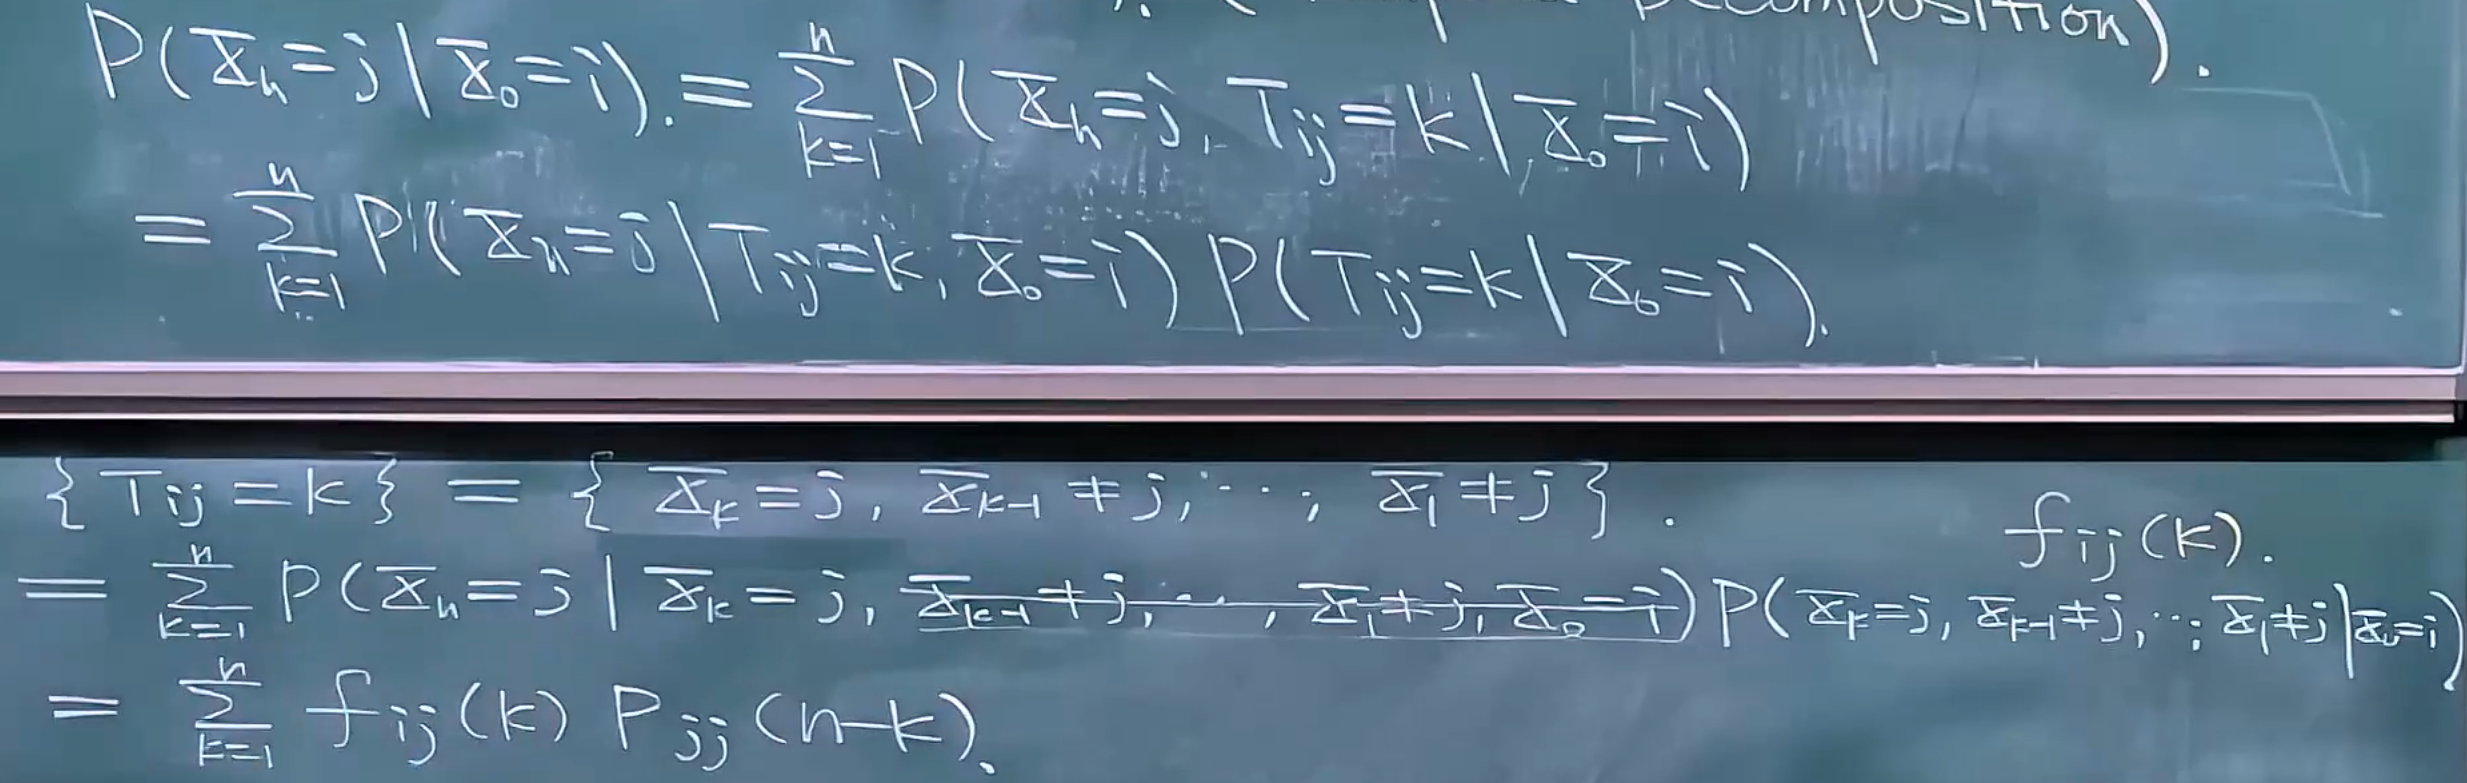 Decomposition).
P(X̄ₙ=j|X̄₀=i).=∑ₖ₌₁ⁿ P(X̄ₙ=j, Tᵢⱼ=k|X̄₀=i)
=∑ₖ₌₁ⁿ P(X̄ₙ=j|Tᵢⱼ=k, X̄₀=i) P(Tᵢⱼ=k|X̄₀=i).
{Tᵢⱼ=k} = {X̄ₖ=j, X̄ₖ₋₁≠j, ⋯, X̄₁≠j}.
fᵢⱼ(k).
=∑ₖ₌₁ⁿ P(X̄ₙ=j|X̄ₖ=j, X̄ₖ₋₁≠j, ⋯, X̄₁≠j, X̄₀=i) P(X̄ₖ=j, X̄ₖ₋₁≠j, ⋯, X̄₁≠j|X̄₀=i)
=∑ₖ₌₁ⁿ fᵢⱼ(k) Pⱼⱼ(n-k).